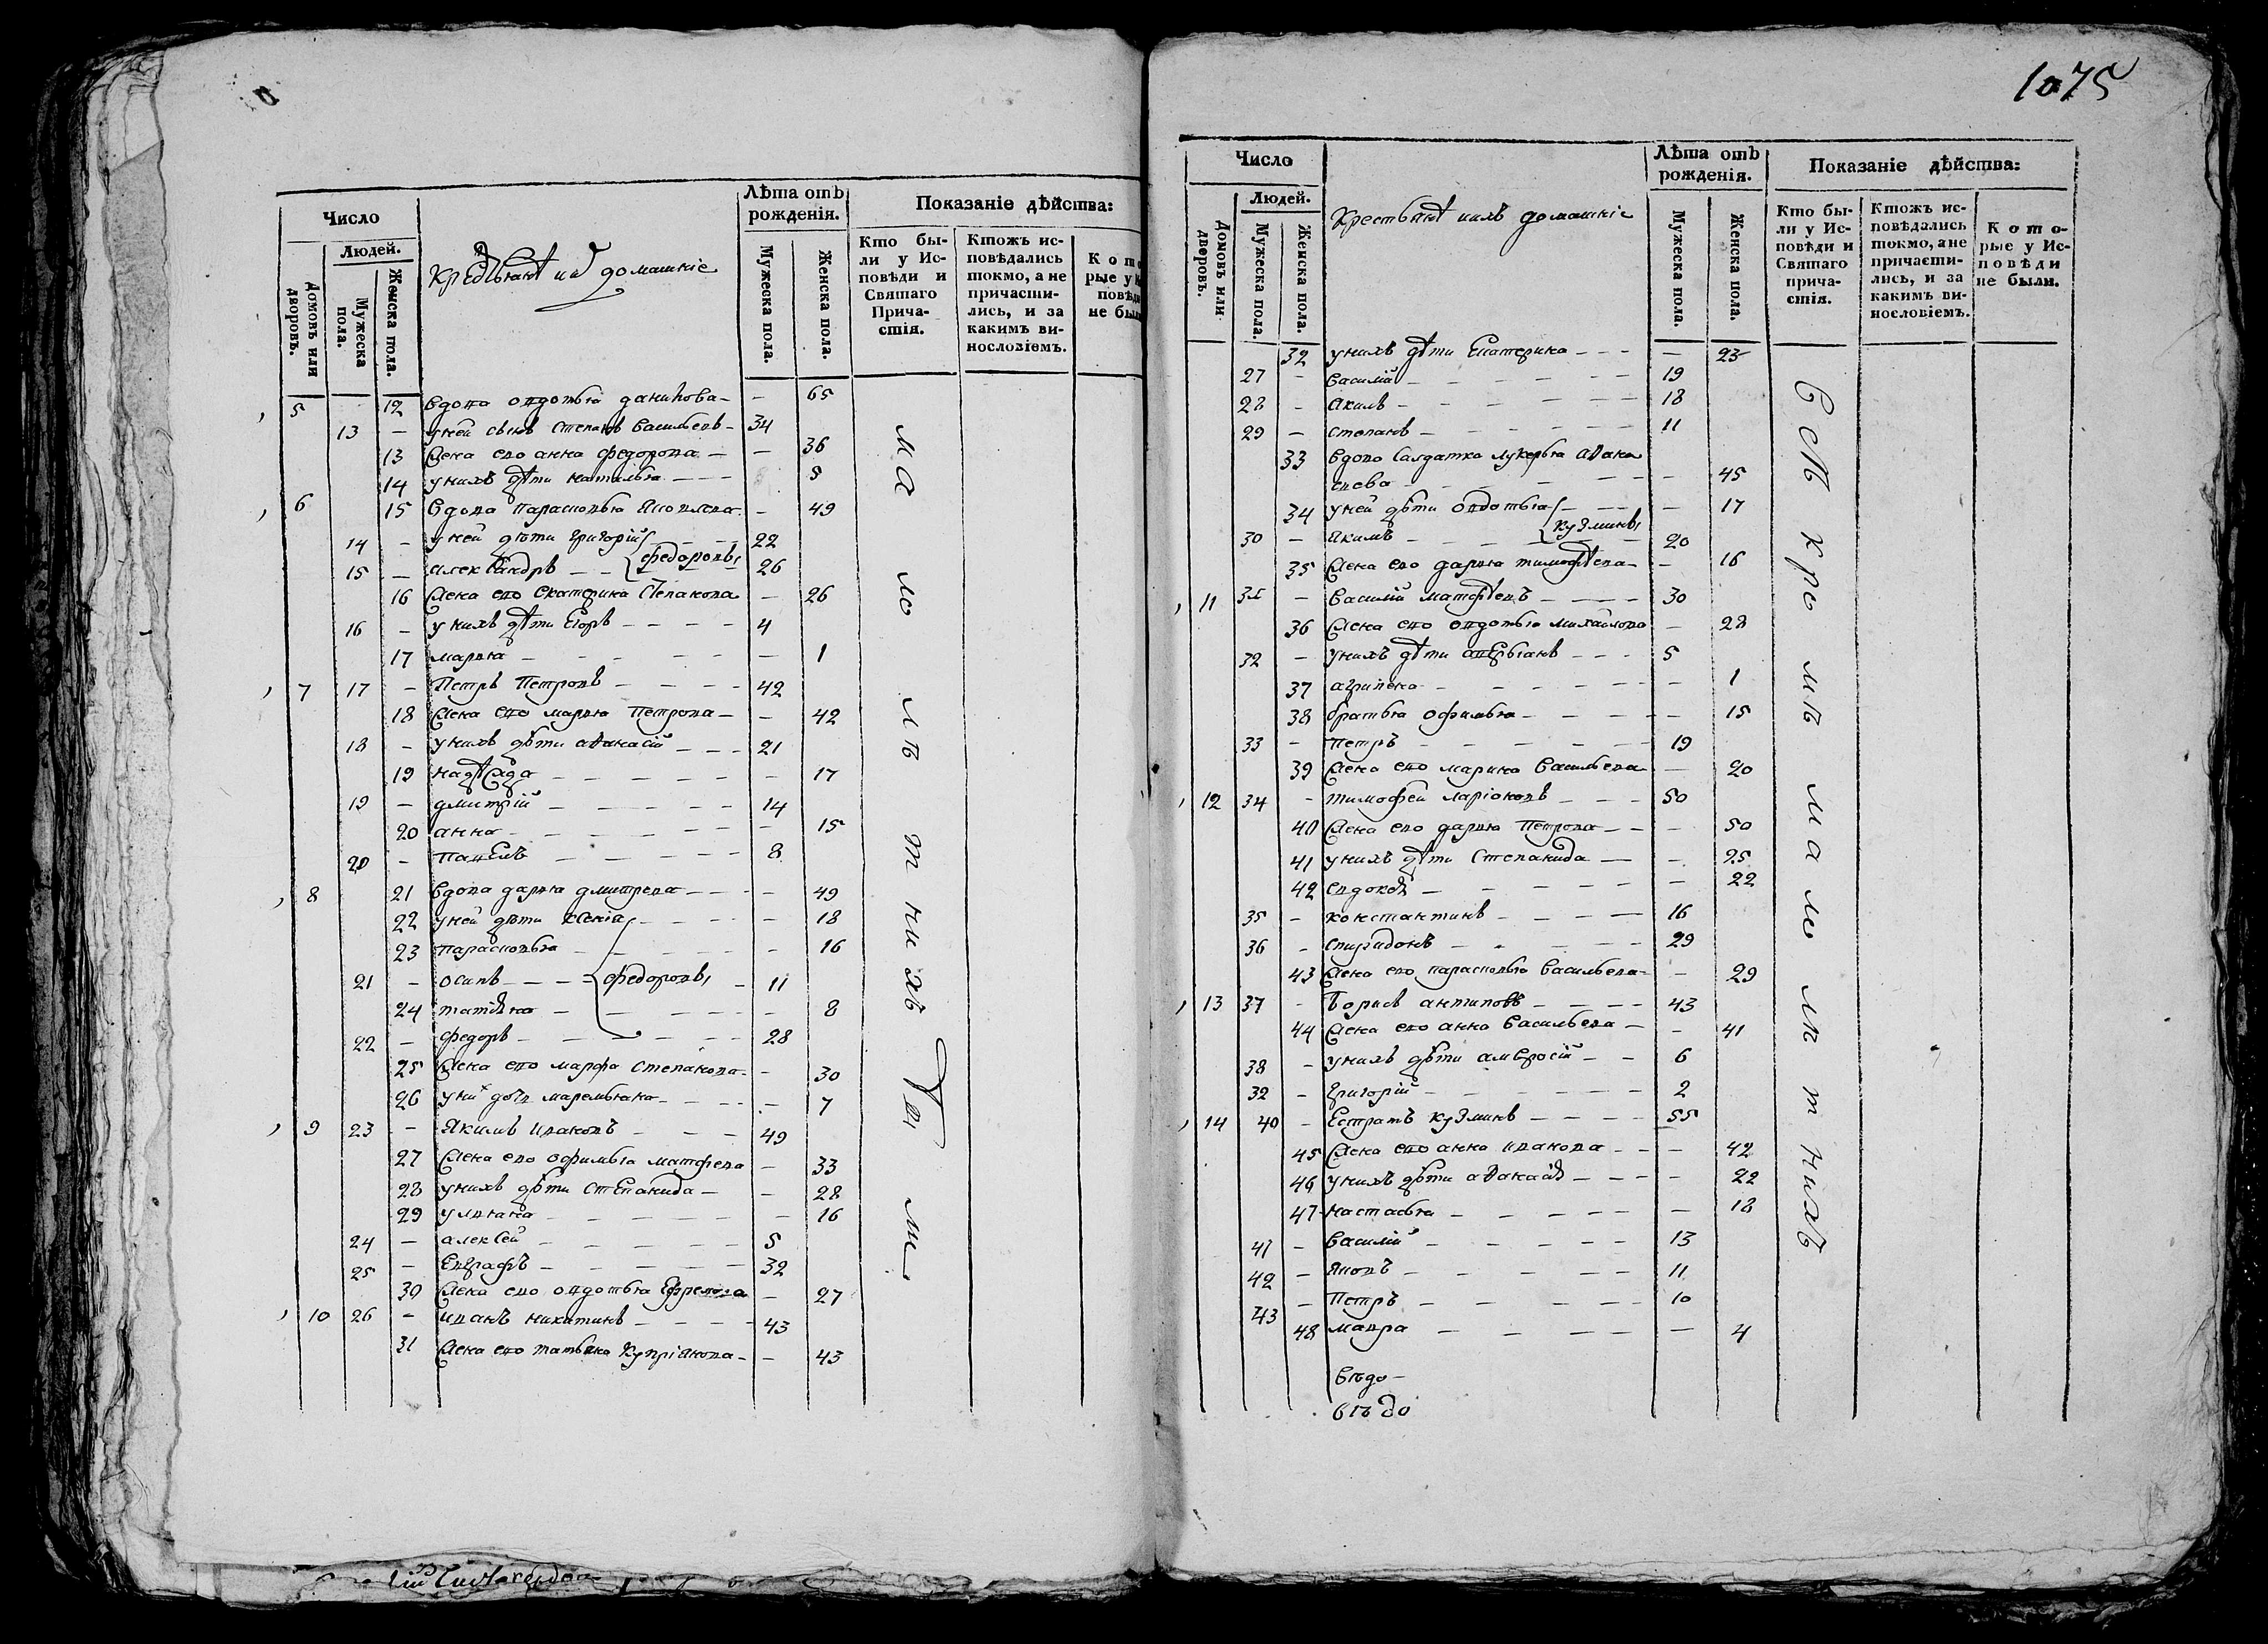 1075
Число
Людей.
Домовъ или дворовъ.
Мужеска пола.
Женска пола.
Крестьянѣ и ихъ домашкіе
Лѣта отъ рожденія.
Мужеска пола.
Женска пола.
Показаніе дѣйства:
Кто бы-
ли у Ис-
повѣди и
Святаго
Прича-
стія.
Ктожъ ис-
повѣдались
токмо, а не
причасти-
лись, и за
какимъ ви-
нословіемъ.
5 12 вдова овдотья данилова - 65
13 - у ней сынъ Степанъ Васильевъ - 34
13 жена ево анна федорова - 36
14 у нихъ дѣти наталья 5
6 15 вдова парасковья Яковлева - 49
14 - у ней дѣти григорій 22
15 - александръ федоровы 26
16 жена ево екатерина Степанова - 26
16 - у нихъ дѣти Егоръ 4
17 марья - 1
7 17 - Петръ Петровъ 42
18 жена ево марья Петрова - 42
18 - у нихъ дѣти аѳанасій 21
19 надѣжда - 17
19 - дмитрій 14
20 анна - 15
20 - павелъ 8
8 21 вдова дарья дмитрева - 49
22 у ней дѣти ксенія - 18
23 парасковья - 16
21 - осипъ федоровы 11
24 татьяна - 8
22 - федоръ 28
25 жена ево марфа степанова - 30
26 у них дочь маремьяна - 7
9 23 - Якимъ Ивановъ 49
27 жена ево офимья матфева - 33
28 у нихъ дѣти степанида - 28
29 ульяна - 16
24 - алексей 5
25 - Евграфъ 32
30 жена ево овдотья Ефремова - 27
10 26 - иванъ никитинъ 43
31 жена ево татьяна Купріянова - 43
Число
Людей.
Домовъ или дворовъ.
Мужеска пола.
Женска пола.
Крестьянѣ и ихъ домашкіе
Лѣта отъ рожденія.
Мужеска пола.
Женска пола.
Показаніе дѣйства:
Кто бы-
ли у Ис-
повѣди и
Святаго
прича-
стія.
Ктожъ ис-
повѣдались
токмо, а не
причасти-
лись, и за
какимъ ви-
нословіемъ.
Кото-
рые у Ис-
повѣди
не были.
32 у нихъ дѣти Екатерина - 23
27 - василій 19
28 - акимъ 18
29 - степанъ 11
33 вдова салдатка лукерья аѳана
сева - 45
34 у ней дѣти овдотья - 17
30 - якимъ кузмины 20
35 жена ево дарья тимофѣева - 16
11 31 - Василій матфѣевъ 30
36 жена ево овдотья михайлова - 28
32 - у нихъ дѣти аверьянъ 5
37 агрипена - 1
38 братья офимья - 15
33 - петръ 19
39 жена ево марина васильева - 20
12 34 - тимофей ларіоновъ 50
40 жена ево дарья петрова - 50
41 у нихъ дѣти степанида - 25
42 евдокѣя - 22
35 - константинъ 16
36 - спиридонъ 29
43 жена ево парасковья васильева - 29
13 37 - борисъ антиповъ 43
44 жена ево анна васильева - 41
38 - у нихъ дѣти амвросій 6
39 - григорій 2
14 40 - Естратъ кузминъ 55
45 жена ево анна иванова - 42
46 у нихъ дѣти аѳанасія - 22
47 настасья - 18
41 - василій 13
42 - яковъ 11
43 - Петръ 10
48 мавра - 4